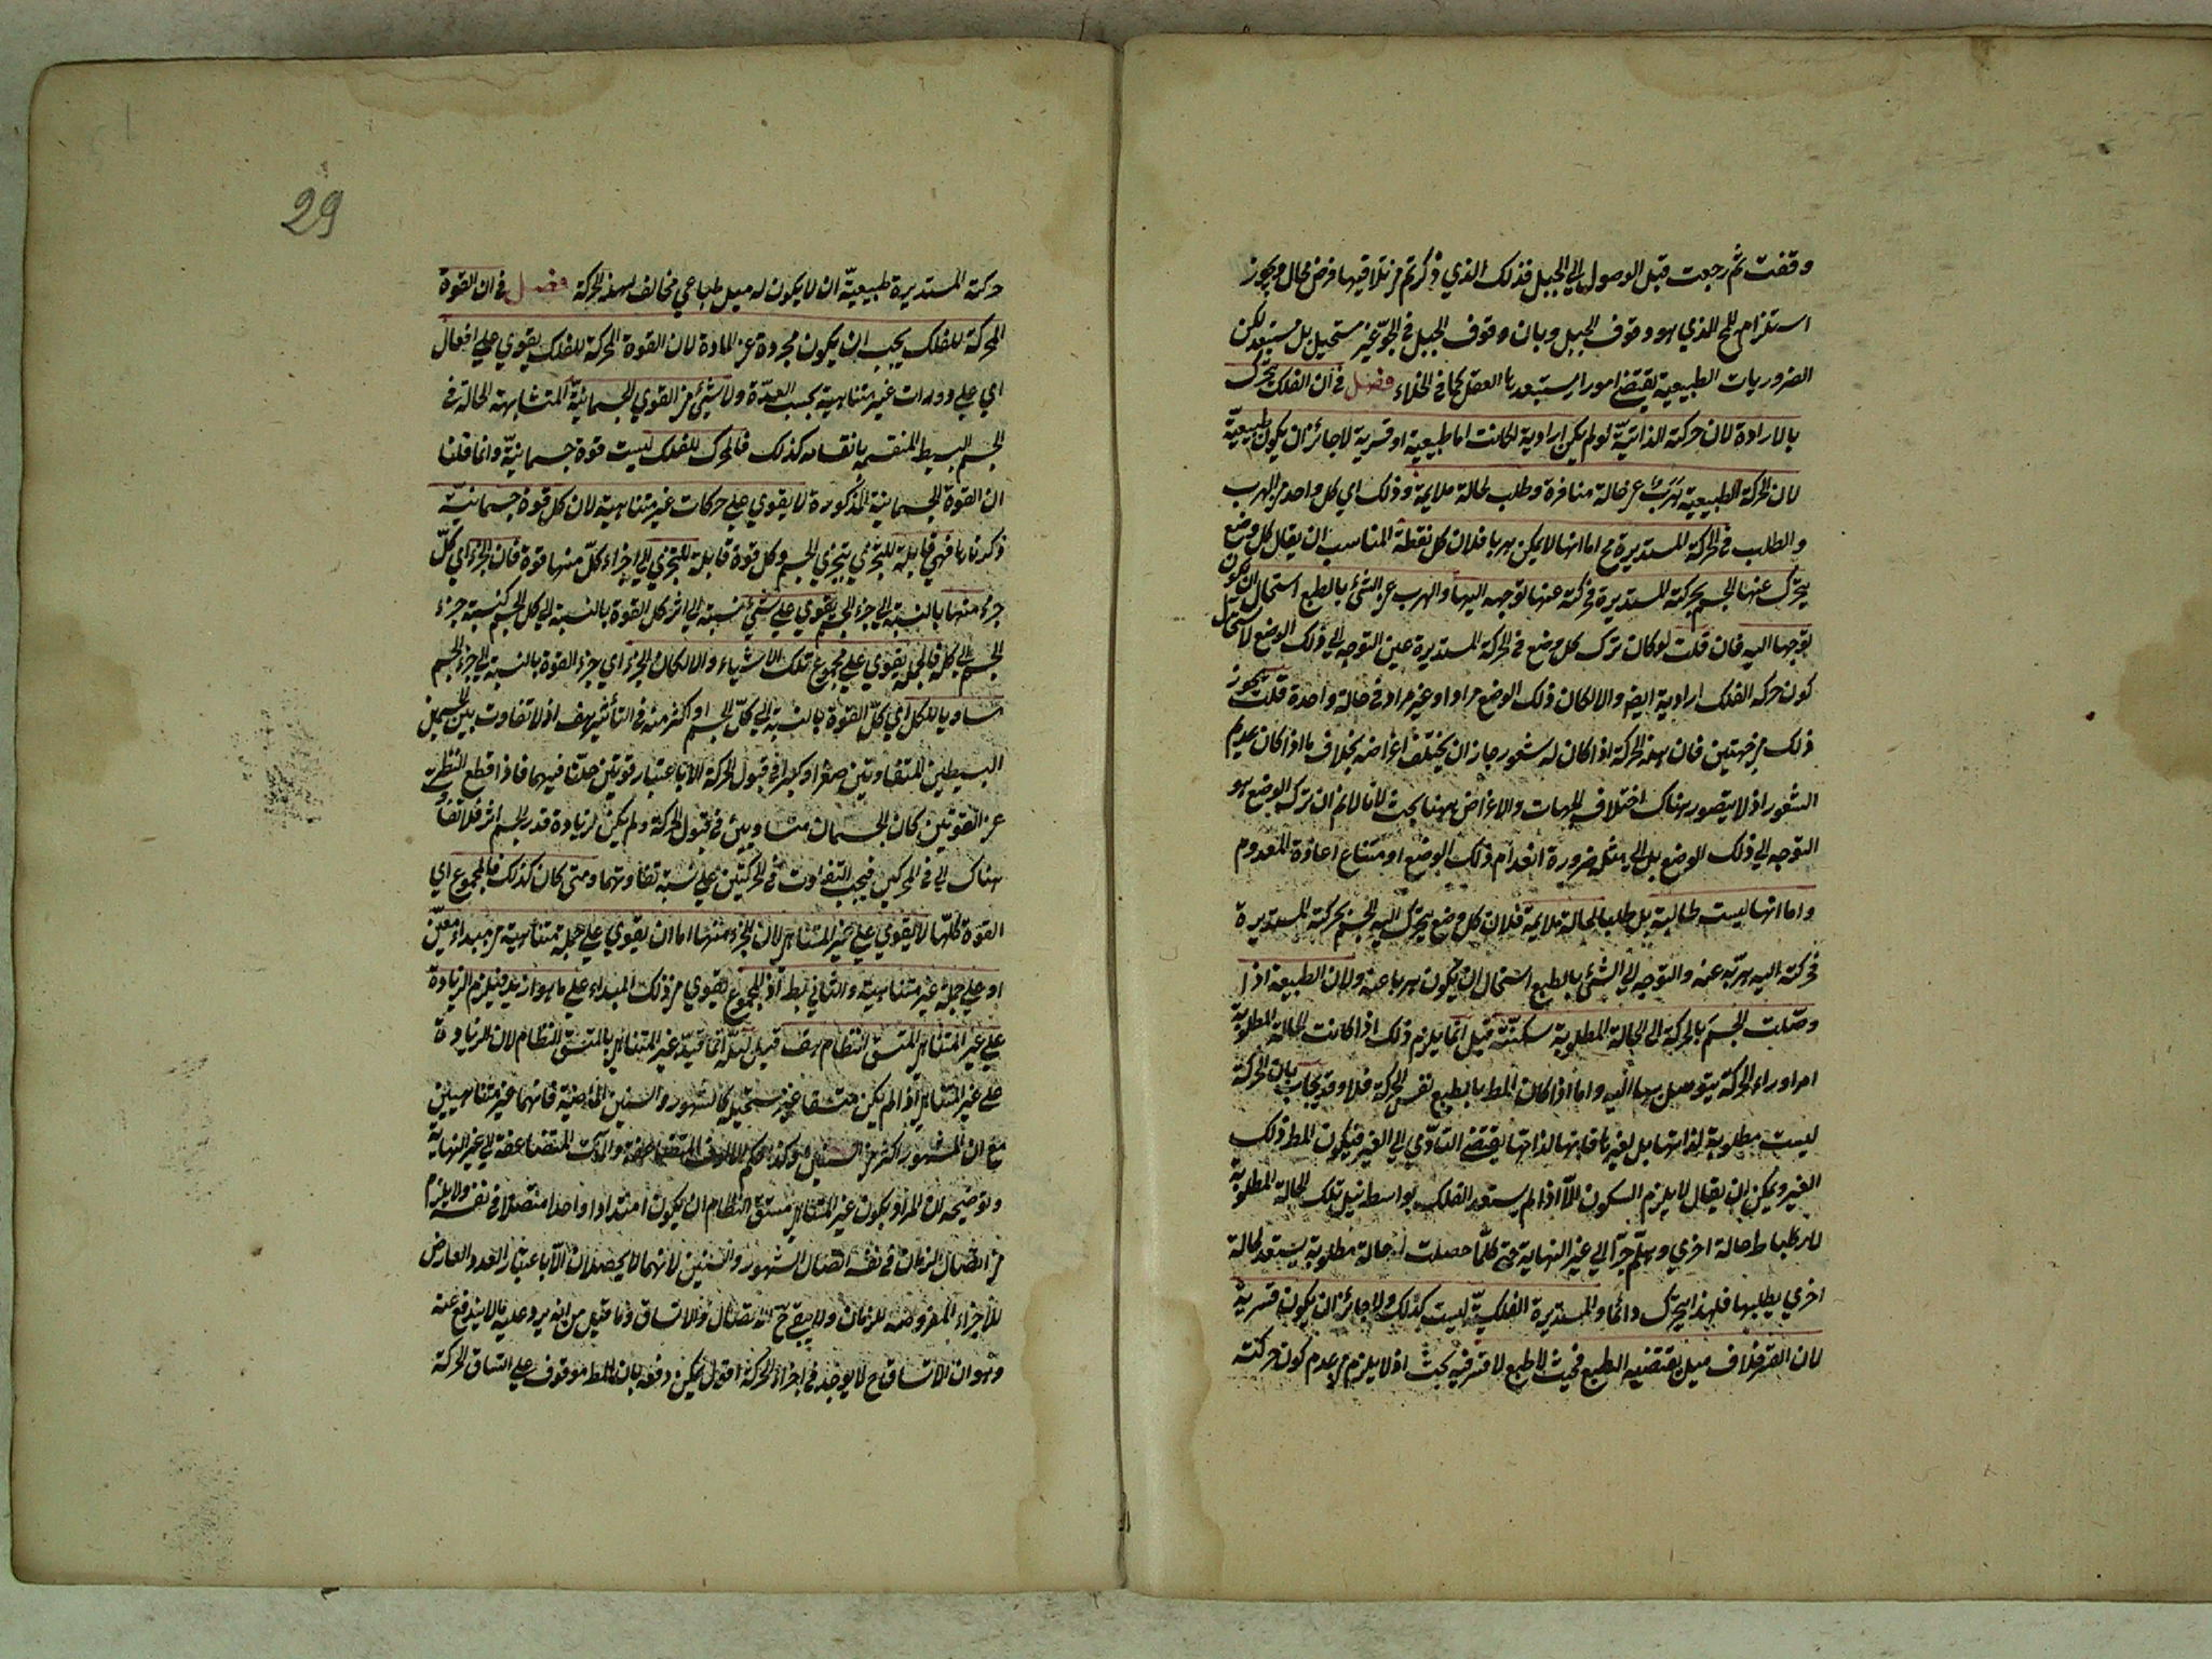 وقفت ثم رجعت قبل الوصول الي الجبل فذلك الذي ذكرتم من تلاقيهما فرض محال ويجوز
استلزام المح الذي هو وقوف الجبل وبان وقوف الجبل في الجو غير مستحيل بل مستبعد لكن
الضروريات الطبيعية يقتضي امورا يستبعدها العقل كما في الخلاء فصل في ان الفلك يتحرك
بالارادة لان حركته الذاتية لو لم يكن ارادية لكانت اما طبيعية او قسرية لا جائز ان يكون طبيعية
لان الحركة الطبيعية هرب عن حالة منافرة وطلب لحالة ملايمة وذلك اي كل واحد من الهرب
والطلب في الحركة المستديرة مح اما انها لا يمكن هربا فلان كل نقطة المناسب ان يقال كل وضع
يتحرك عنها الجسم بحركته المستديرة فحركته عنها توجه اليها والهرب عن الشئ بالطبع استحال ان يكون
توجها اليه فان قلت لو كان ترك كل وضع في الحركة المستديرة عين التوجه الي ذلك الوضع لاستحال
كون حركة الفلك ارادية ايضا والا لكان ذلك الوضع مرادا وغير مراد في حالة واحدة قلت يجوز
ذلك من جهتين فان مبدء الحركة اذا كان له شعور جاز ان يختلف اغراضه بخلاف ما اذا كان عديم
الشعور اذ لا يتصور هناك اختلاف الجهات والاغراض ههنا بحث لانا لا نم ان ترك الوضع هو
التوجه الي ذلك الوضع بل الي مثله ضرورة انعدام ذلك الوضع وامتناع اعادة المعدوم
واما انها ليست طالبة بل طلبا لحالة ملايمة فلان كل وضع يتحرك اليه الجسم بحركته المستديرة
فحركته اليه هربه عنه والتوجه الي الشئ بالطبع استحال ان يكون هربا عنه ولان الطبيعة اذا
وصلت الجسم بالحركة الي الحالة المطلوبة سكنته قيل انما يلزم ذلك اذا كانت الحالة المطلوبة
امرا وراء الحركة يتوصل بها اليه واما اذا كان المط بالطبع نفس الحركة فلا وقد يجاب بان الحركة
ليست مطلوبة لذاتها بل لغيرها فانها لذاتها يقتضي التأدي الي الغير فيكون المط ذلك
الغير ويمكن ان يقال لا يلزم السكون الا اذا لم يستعد الفلك بواسط نيل تلك الحالة المطلوبة
حالة اخري وهلم جرا الي غير النهاية حتي كلما حصلت له حالة مطلوبة يستعد لحالة
اخري يطلبها فلهذا يتحرك دائما والمستديرة الفلكية ليست كذلك ولا جائز ان يكون قسرية
لان القسر خلاف ميل يقتضيه الطبع فحيث لا طبع لا قسر فيه بحث اذ لا يلزم من عدم كون حركته
29
حركته المستديرة طبيعية ان لا يكون له ميل طباعي مخالف لهذه الحركة فصل في ان القوة
المحركة للفلك يجب ان يكون مجردة عن المادة لان القوة المحركة للفلك يقوي علي افعال
اي علي دورات غير متناهية بحسب العدة ولا شئ من القوي الجسمانية المتشابهة الحالة في
الجسم البسيط المنقسمة بانقسامه كذلك فالمحرك للفلك ليست قوة جسمانية وانما قلنا
ان القوة الجسمانية المذكورة لا يقوي علي حركات غير متناهية لان كل قوة جسمانية
ذكرناها فهي قابلة للتجزي بتجزي الجسم وكل قوة قابلة للتجزي الي اجزاء كل منها قوة فان الجزء اي كل
جزء منها بالنسبة الي جزء الجسم يقوي علي شئ نسبته الي اثر كل القوة بالنسبة الي كل الجسم كنسبة جزء
الجسم الي كله فالجملة يقوي علي مجموع تلك الاشياء والا لكان الجزء اي جزء القوة بالنسبة الي جزء الجسم
مساويا للكل اي كل القوة بالنسبة الي كل الجسم او اكثر منه في التأثير هف اذ لا تفاوت بين الجسمين
البسيطين المتفاوتين صغرا وكبرا في قبول الحركة الا باعتبار قوتين حلتا فيهما فاذا قطع النظر
عن القوتين كان الجسمان متساويين في قبول الحركة ولم يكن لزيادة قدر الجسم اثر فلا تفاوت
هناك الي في المحركين فيجب التفاوت في الحركتين علي نسبة تفاوتهما ومتي كان كذلك فالمجموع اي
القوة كلها لا يقوي علي غير المتناهي لان الجزء منها اما ان يقوي علي جملة متناهية من مبداء معين
او علي جملة غير متناهية والثاني بط اذ المجموع يقوي من ذلك المبداء علي ما هو ازيد فيلزم الزيادة
علي غير المتناهي المتسق النظام هف قيل انما قيد غير المتناهي بالمتسق النظام لان الزيادة
علي غير المتناهي اذا لم يكن متسقا غير مستحيل كالشهور والسنين الماضية فانهما غير متناهيين
مع ان الشهور اكثر من السنين وكذا حكم الالوف المتضاعفة والمآت المتضاعفة الي غير النهاية
وتوضيحه ان المراد بكون غير المتناهي متسق النظام ان يكون امتدادا واحدا متصلا في نفسه ولا يلزم
من اتصال الزمان في نفسه اتصال الشهور والسنين لانهما لا يحصلان الا باعتبار العدد العارض
للاجزاء المفروضة للزمان ولا يبقي ح الاتصال والاتساق وما قيل من انه يرد عليه ما لا يندفع عنه
وهو ان الاتساق ح لا يوجد في اجزاء الحركة اقول يمكن دفعه بان المط موقوف علي اتساق الحركة